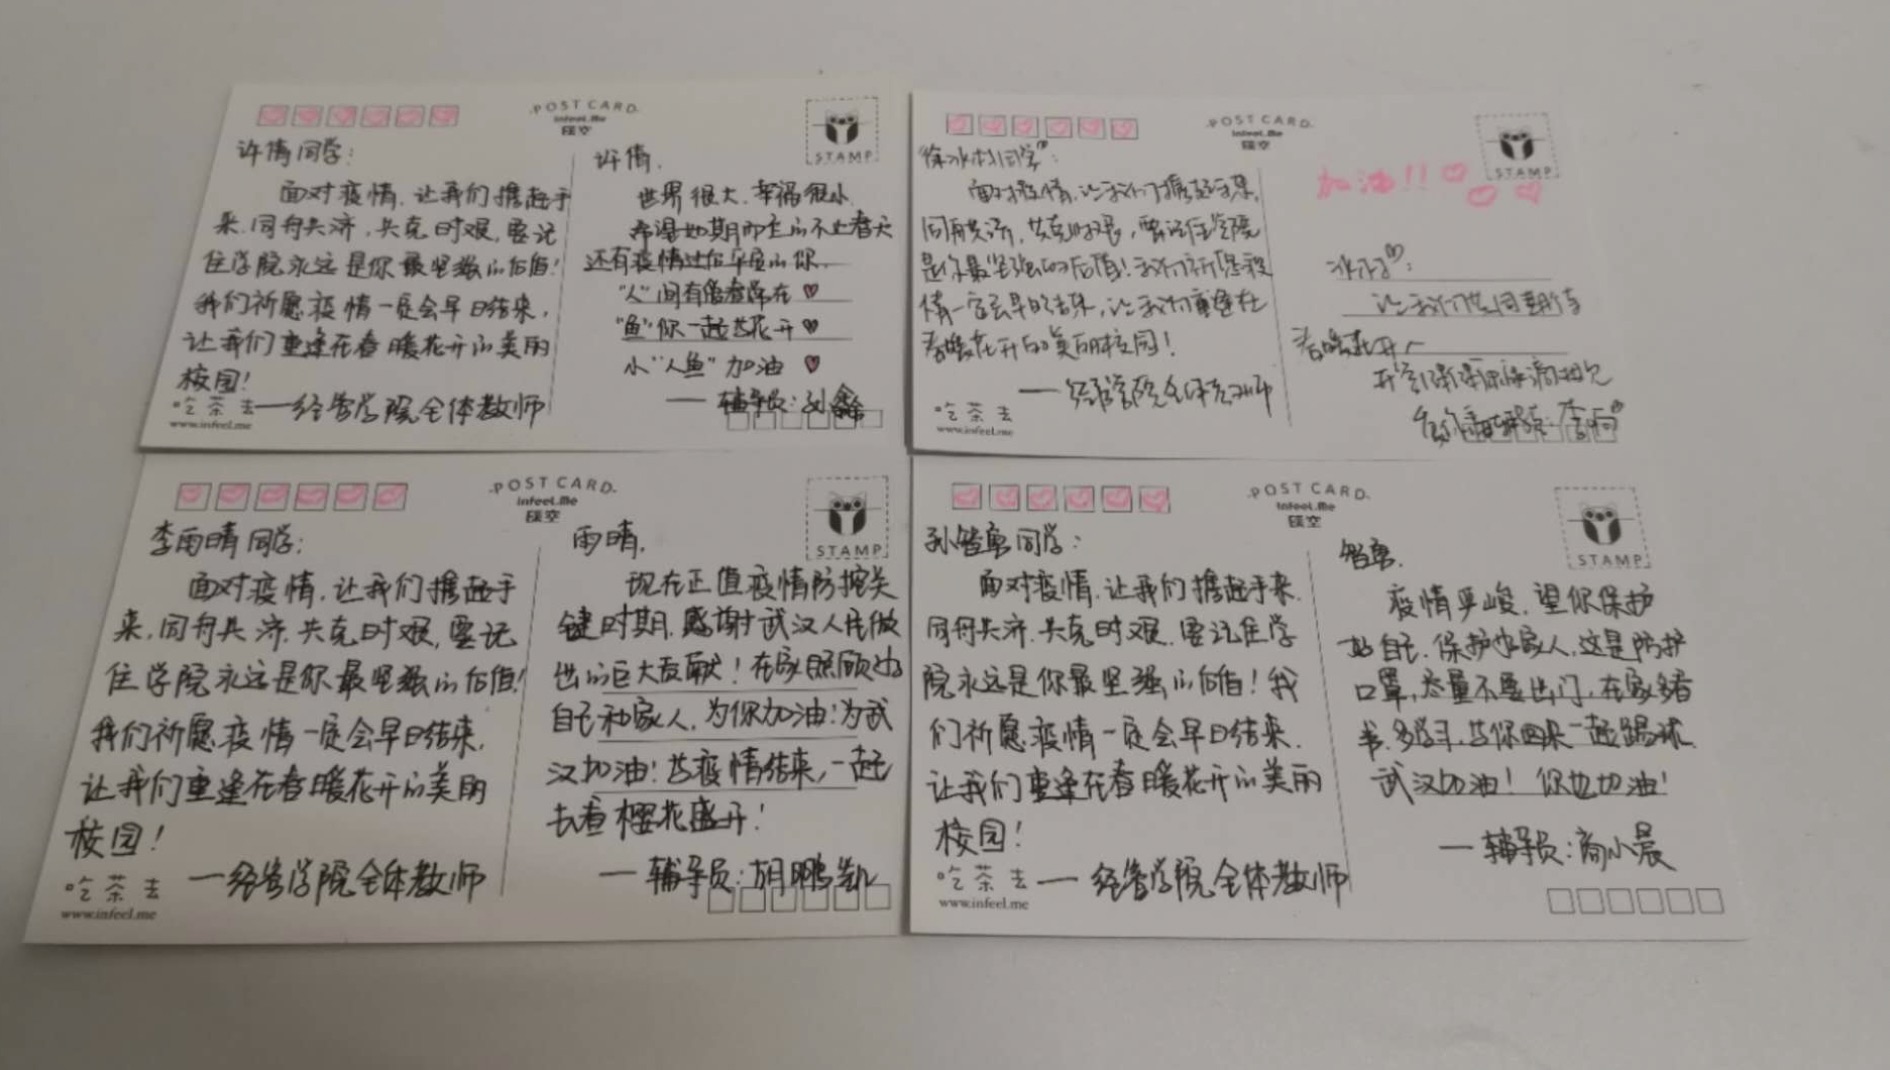 POST CARD
infeel.me
STAMP
许倩同学:
面对疫情,让我们携起手
来,同舟共济,共克时艰,要记
住学院永远是你最坚强的后盾!
我们祈愿疫情一定会早日结束,
让我们重逢在春暖花开的美丽
校园!
——经管学院全体教师
吃茶去
www.infeel.me
许倩,
世界很大,幸福很小,
希望如期而至的不止春天
还有疫情过后平安的你.
"人"间有你
"鱼"你一起 花开
小"人鱼"加油
——辅导员:孙鑫
POST CARD
infeel.me
STAMP
加油!!
同学:
面对疫情,让我们携起手来,
同舟共济,共克时艰,要记住学院
是你最坚强的后盾!我们祈愿疫
情一定会早日结束,让我们重逢在
春暖花开的美丽校园!
——经管学院全体教师
吃茶去
www.infeel.me
让我们共同期待
春暖花开
POST CARD
infeel.me
STAMP
李雨晴同学:
面对疫情,让我们携起手
来,同舟共济,共克时艰,要记
住学院永远是你最坚强的后盾!
我们祈愿疫情一定会早日结束,
让我们重逢在春暖花开的美丽
校园!
——经管学院全体教师
吃茶去
www.infeel.me
雨晴,
现在正值疫情防控关
键时期,感谢武汉人民做
出的巨大贡献!在家照顾好
自己和家人,为你加油!为武
汉加油!若疫情结束,一起
去看樱花盛开!
——辅导员:胡鹏凯
POST CARD
infeel.me
STAMP
孙智勇同学:
面对疫情,让我们携起手来,
同舟共济,共克时艰,要记住学
院永远是你最坚强的后盾!我
们祈愿疫情一定会早日结束,
让我们重逢在春暖花开的美丽
校园!
——经管学院全体教师
吃茶去
www.infeel.me
智勇,
疫情严峻,望你保护
好自己,保护好家人,这是防护
口罩,尽量不要出门,在家多看
书,多学习,等你回来一起踢球.
武汉加油!你也加油!
——辅导员:商小晨